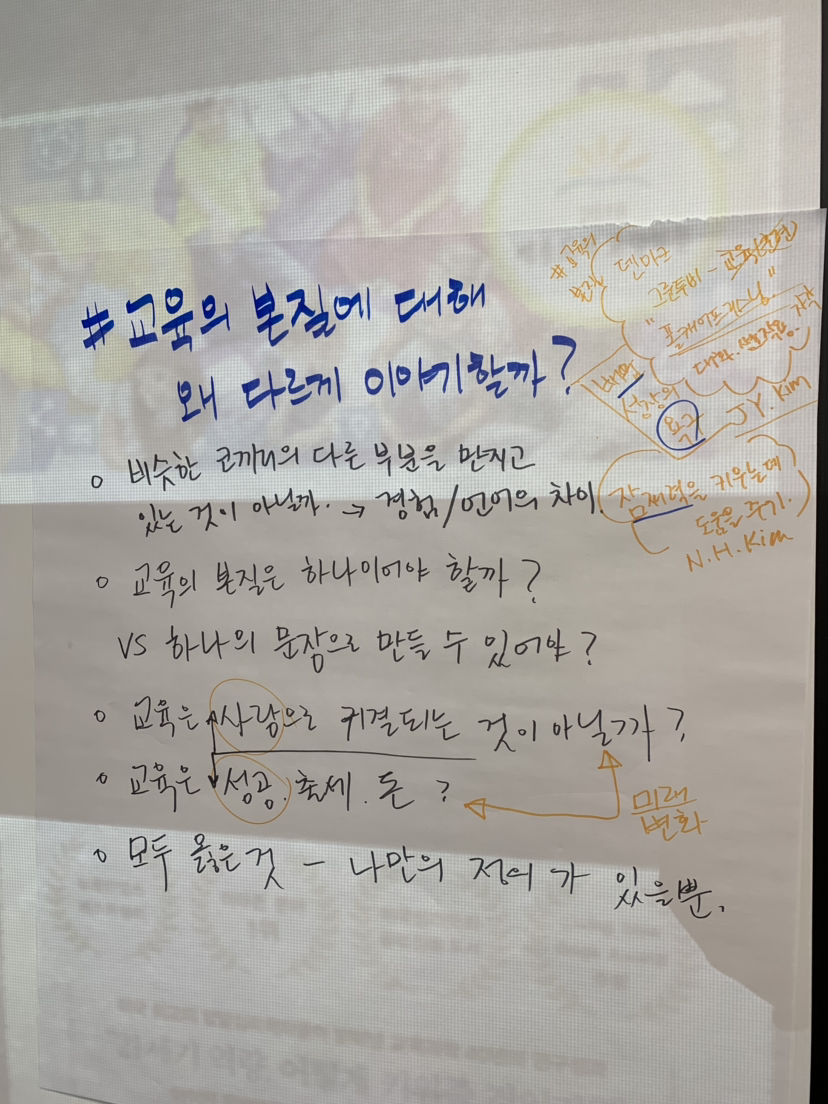 # 교육의 본질에 대해
왜 다르게 이야기할까?
o 비슷한 코끼리의 다른 부분을 만지고
있는 것이 아닐까. → 경험/언어의 차이
o 교육의 본질은 하나이어야 할까?
VS 하나의 문장으로 만들 수 있어야?
o 교육은 사람으로 귀결되는 것이 아닐까?
o 교육은 성공. 출세. 돈?
미래
변화
o 모두 옳은 것 - 나만의 정의가 있을뿐.
#교육의
본질
덴마크
그룬투비 -
"폴케이프리스닝"
대화. 상호작용. 자각
성장의
욕구
JY. Kim
잠재력을 키우는데
도움을 주기.
N.H. Kim